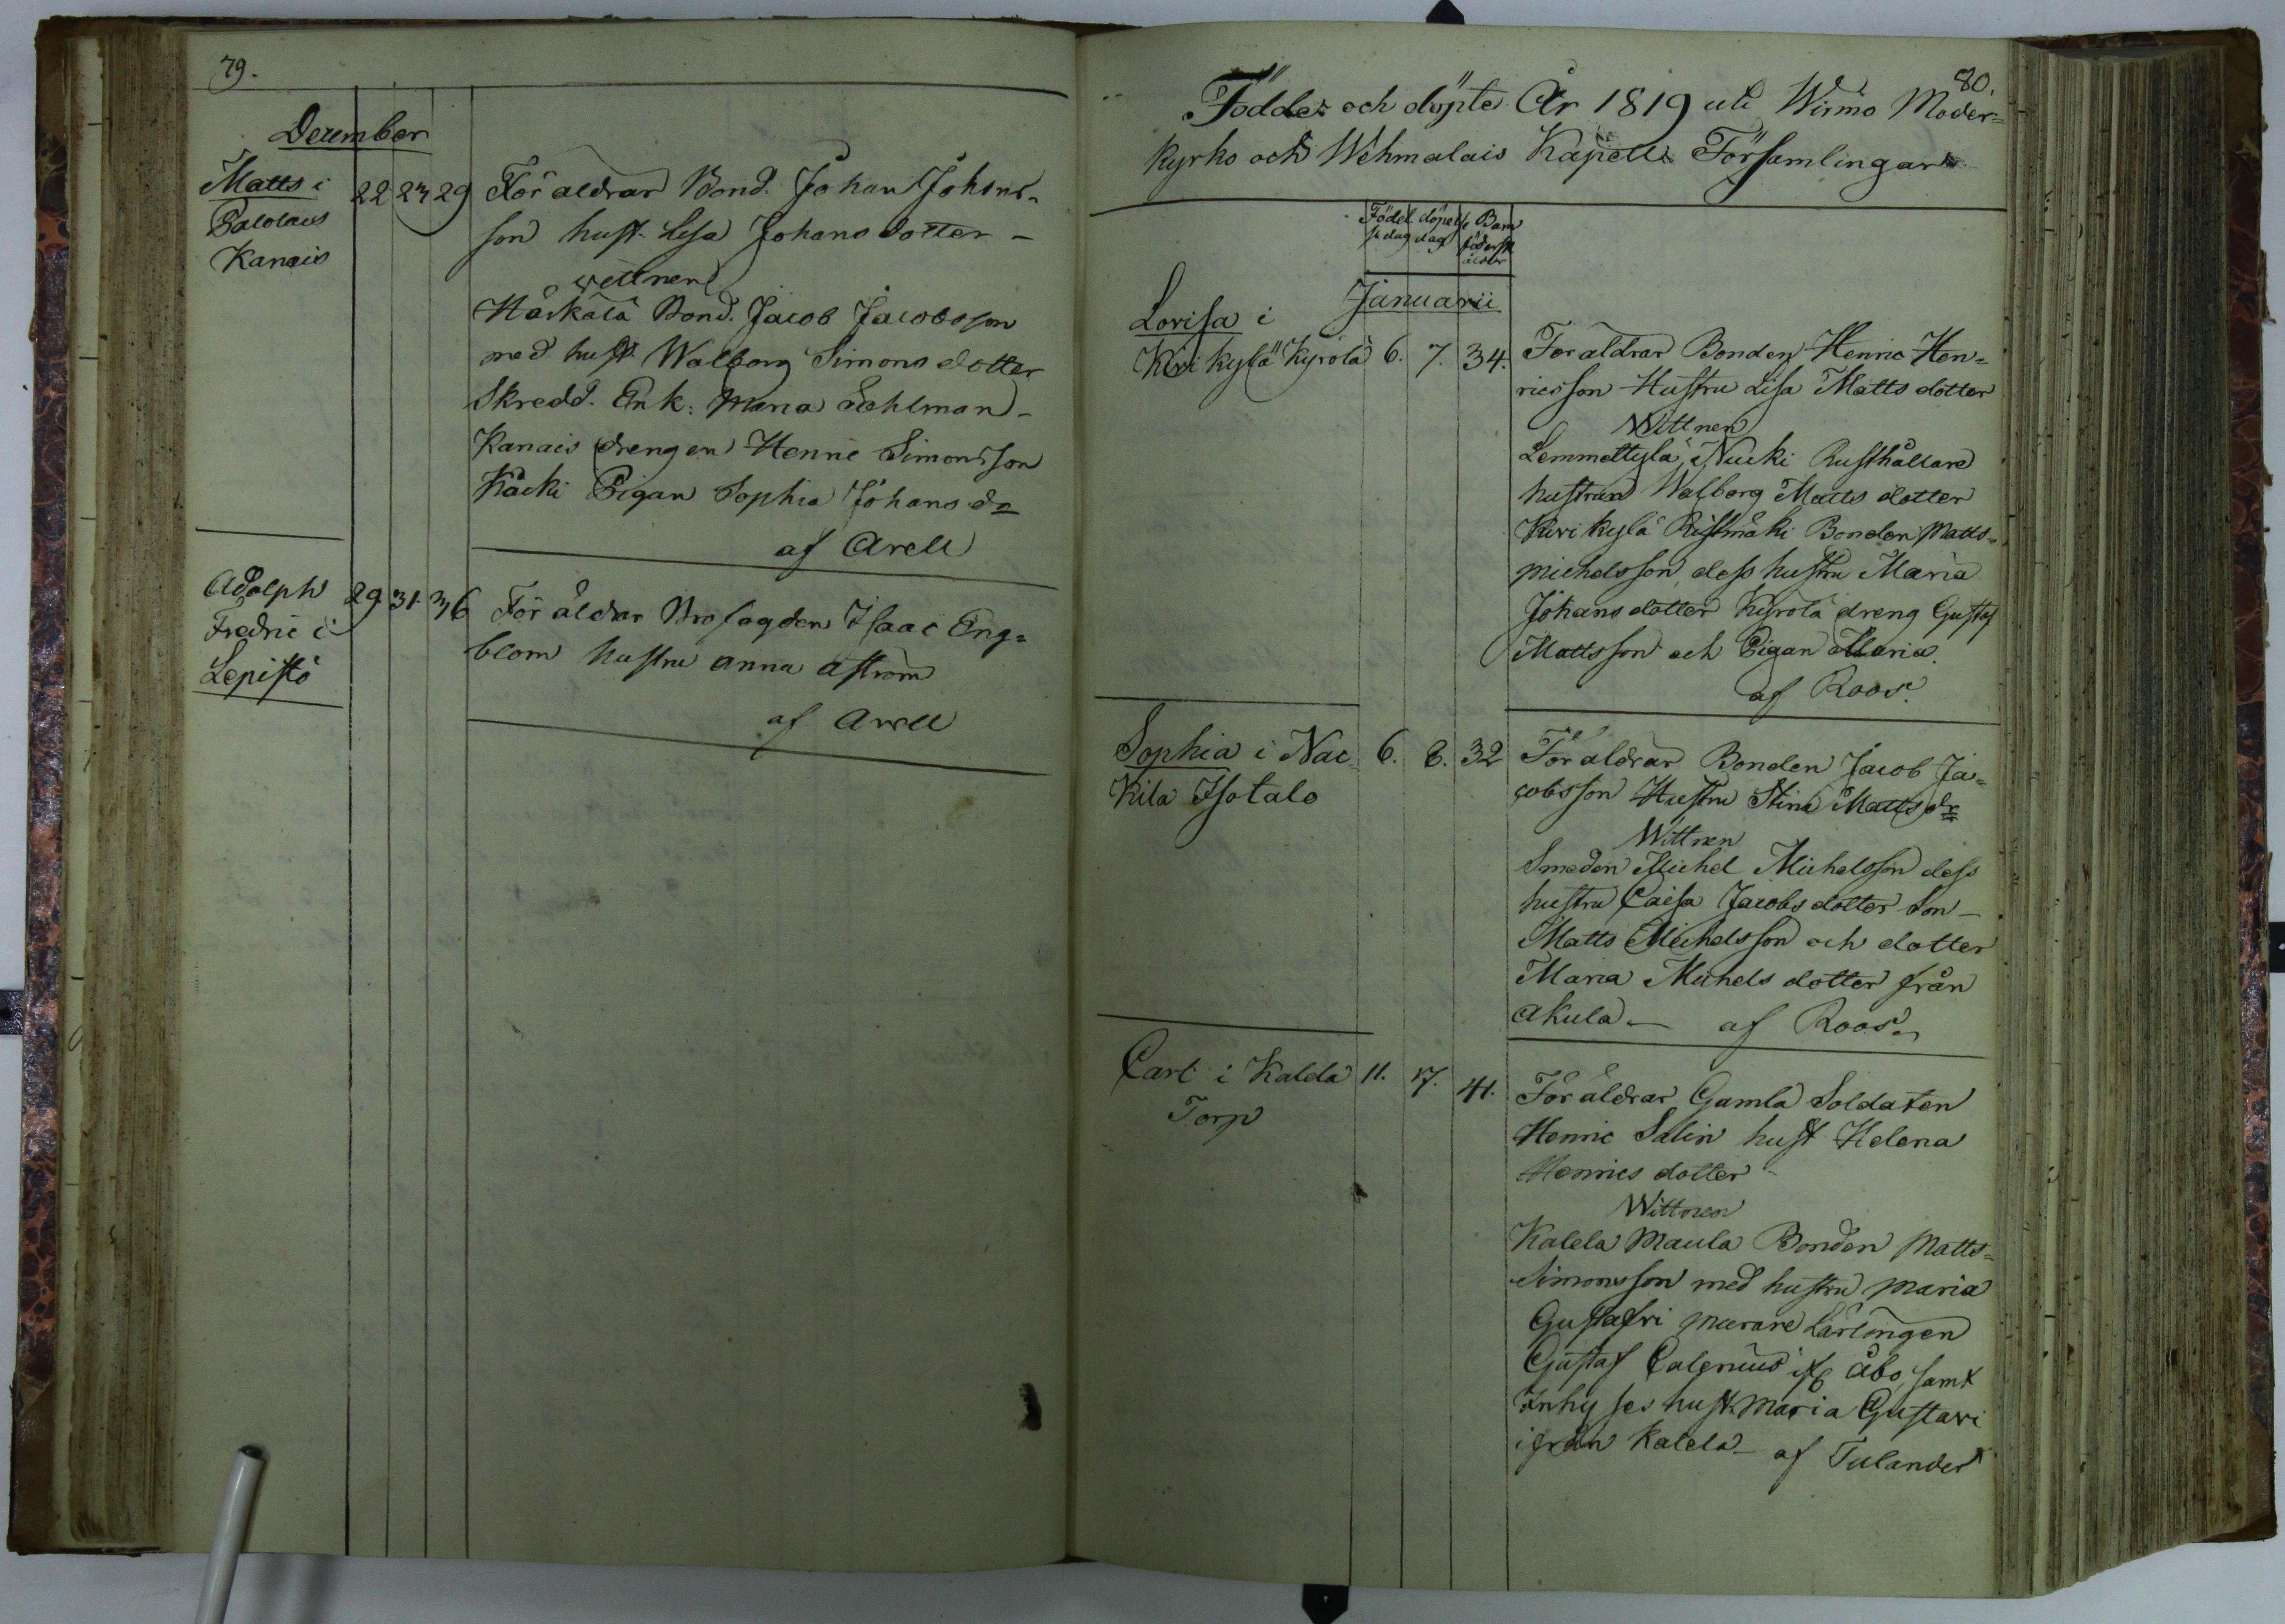 79.
December
Matts i 22 23 29 Föräldrar Bond. Johan Johans-
Palolaus son hust. Lisa Johans dotter -
Kanais
wittnen
Härkälä Bond. Jacob Jacobsson
med hust Walborg Simons dotter
Skredd. Enk: Maria Sahlman -
Kanais drengen Henric Simonsson
Käcki Pigan Sophia Johans dr
af Arell
Adolph 29 31. 36 Föräldrar Brofogden Isaac Eng=
Fredric i blom hustru Anna Åström
Lepistö
af Arell
80.
Födde och döpte År 1819 uti Wirmo Moder=
kyrko och Wehmalais Kapells Församlingar
Födel döpelse Barn
se dag dag födersk
ålder
Januarii
Lovisa i
Kirikylä Kyrölä 6. 7. 34. Föräldrar Bonden Henric Hen=
ricsson Hustru Lisa Matts dotter
Wittnen
Lemmettylä Nucki Rusthållare
hustrun Walborg Matts dotter
Kirikylä Ristimäki Bonden Matts
Michelsson dess hustru Maria
Johans dotter Kyrölä dreng Gustaf
Mattsson och Pigan Maria.
af Roos.
Sophia i Nac= 6. 8. 32 Föräldrar Bonden Jacob Ja=
kila Isotalo cobsson Hustru Stina Matts dr
Wittnen
Smeden Michel Michelsson dess
hustru Caisa Jacobs dotter Son -
Matts Michelsson och dotter
Maria Michels dotter från
Akula - af Roos.
Carl i Kalela 11. 17. 41. Föräldrar Gamla Soldaten
Torp Henric Salin hust Helena
Henrics dotter
Wittnen
Kalela Maula Bonden Matts=
Simonsson med hustru Maria
Gustafri Murare Lärlingen
Gustaf Åbo, samt
Inhyses hust. Maria Gustavi
ifrån Kalela - af Tulander